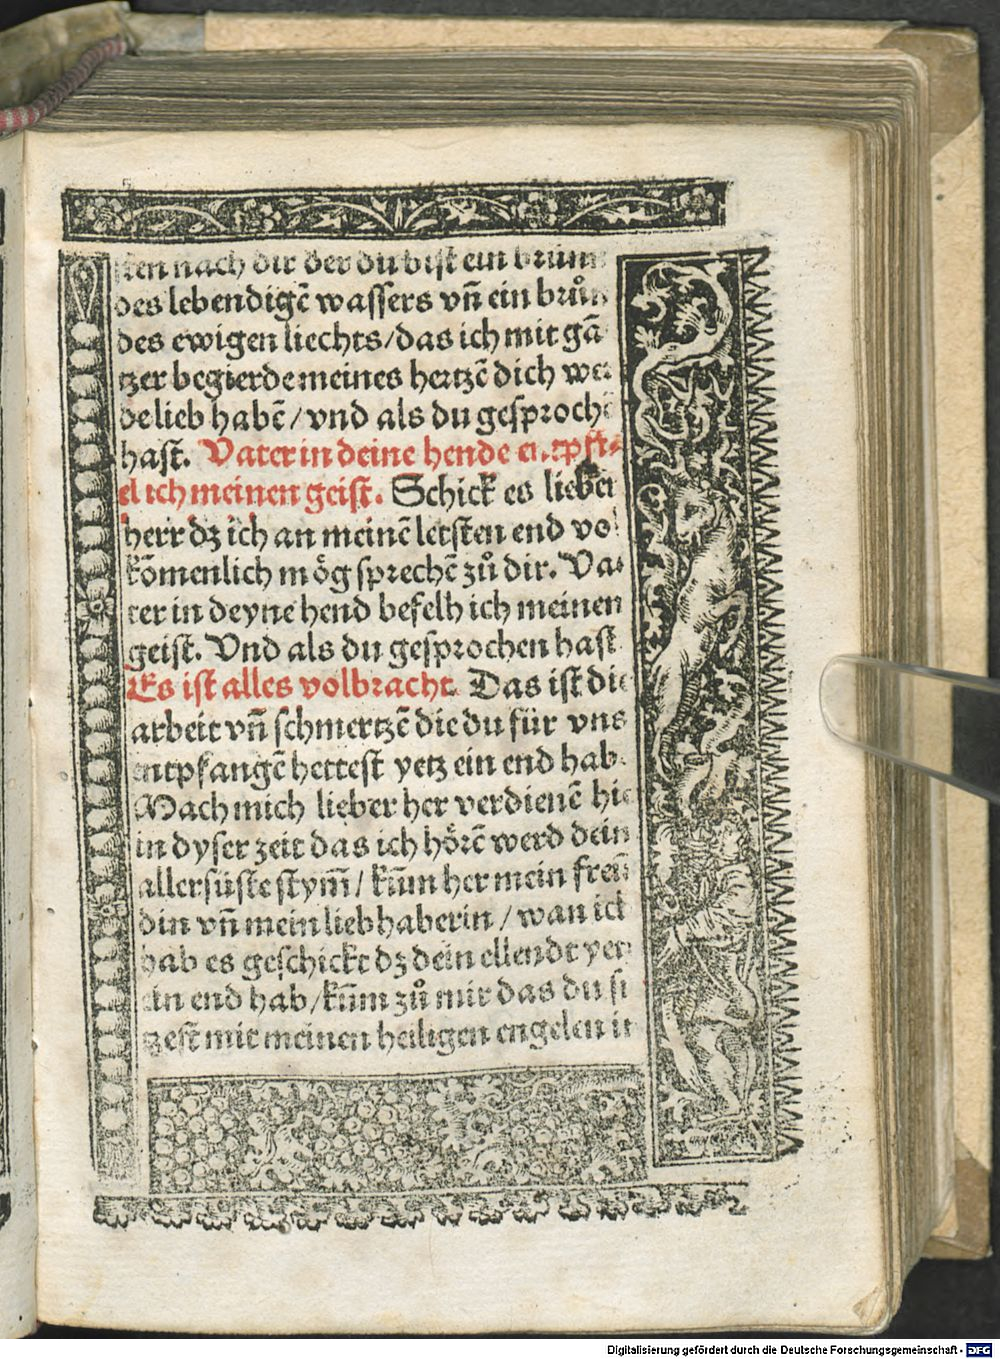 ten nach dir der du bist ein brunn
des lebendigē wassers vn̄ ein brůn
des ewigen liechts/das ich mit gā
tzer begierde meines hertzē dich wer
de lieb habē/vnd als du gesprochē
hast. Vater in deine hende entpfi-
el ich meinen geist. Schick es lieber
herr dz ich an meinē letsten end vol
kōmenlich mög sprechē zů dir. Va-
ter in deyne hend befelh ich meinen
geist. Vnd als du gesprochen hast
Es ist alles volbracht. Das ist die
arbeit vn̄ schmertzē die du für vns
entpfangē hettest yetz ein end hab.
Mach mich lieber her verdienē hie
in dyser zeit das ich hörē werd dein
allersüste stym̄/kūm her mein freü
din vn̄ mein liebhaberin/wan ich
hab es geschickt dz dein ellendt yetz
ein end hab/kūm zů mir das du si
tzest mit meinen heiligen engelen in
Digitalisierung gefördert durch die Deutsche Forschungsgemeinschaft - DFG